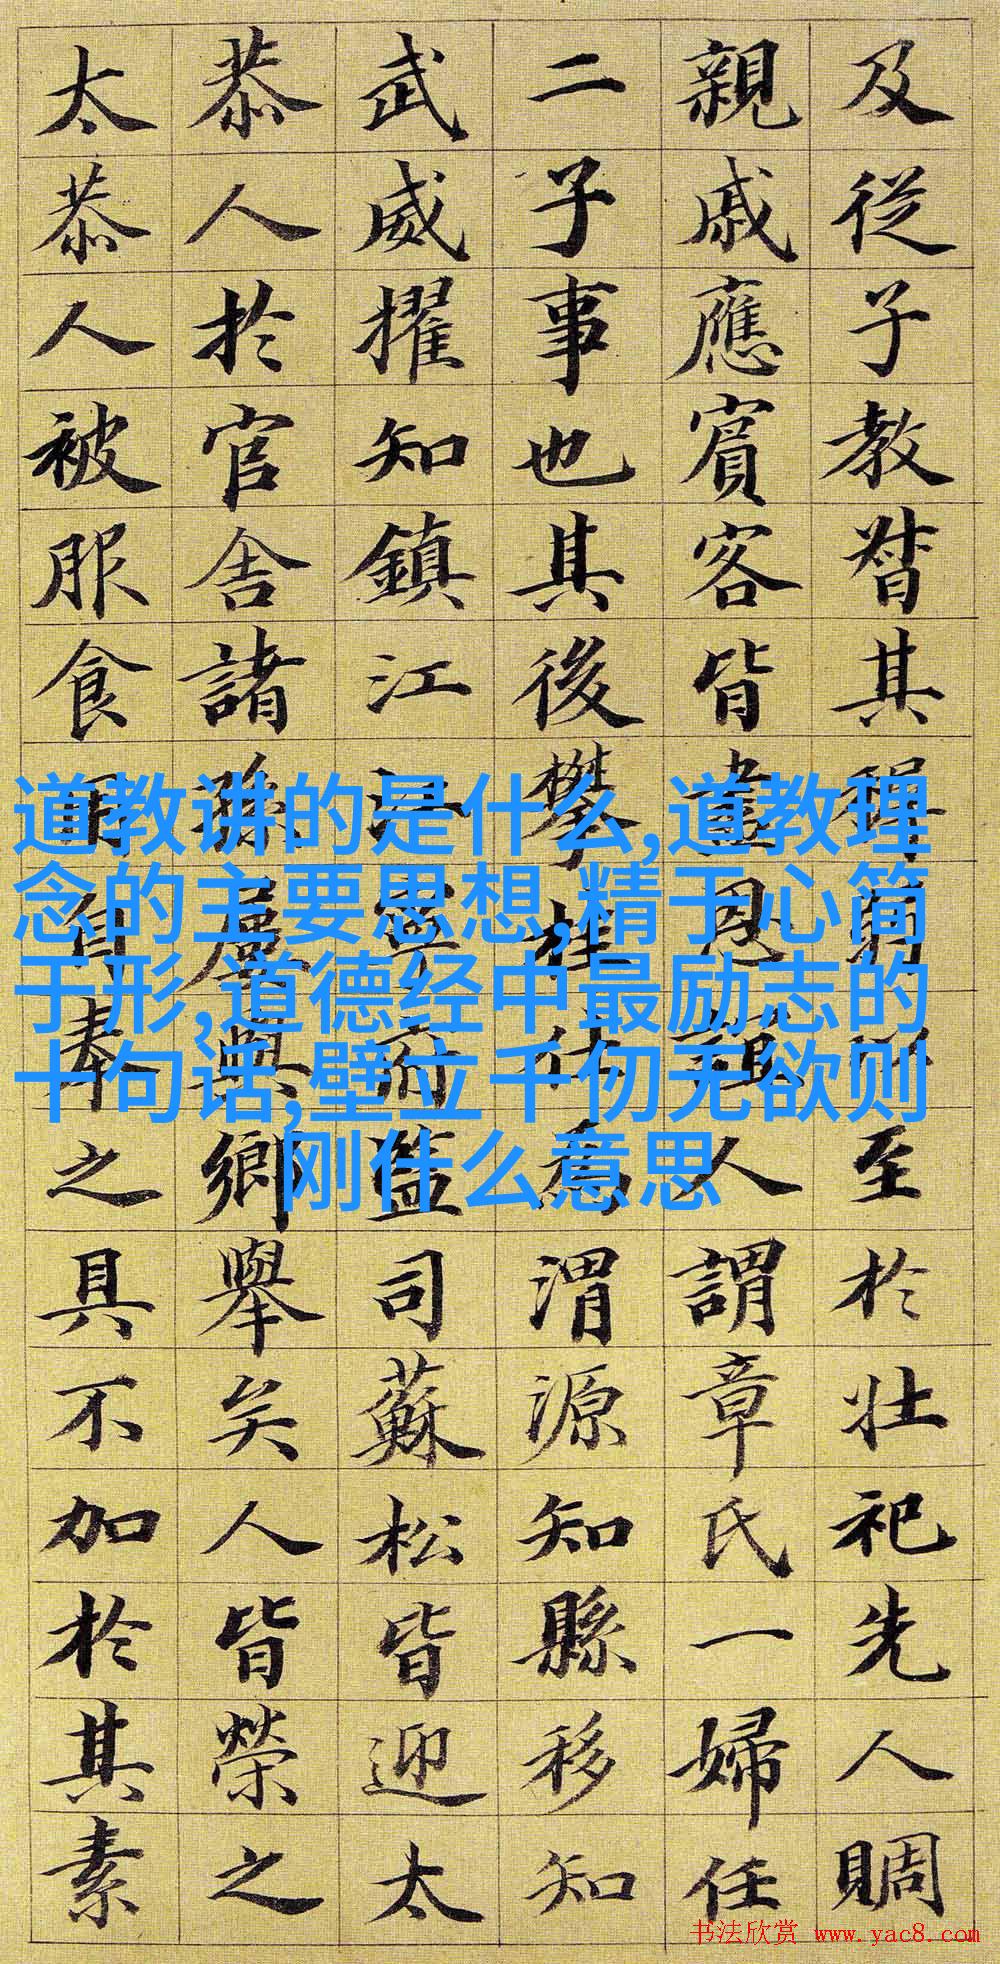 及從子教督其
至於壯祀先人賙
親戚應賓客皆盡
人謂章氏一婦任
二子事也其後攀桂
為渭源知縣移知
武威擢知鎮江
監司蘇松皆迎太
恭人於官舍諸孫
與鄉舉矣人皆榮之
太恭人被服食用自
奉之具不加於其素
道教讲的是什么,道教理
念的主要思想,精于心简
于形,道德经中最励志的
十句话,壁立千仞无欲则
刚什么意思
书法欣赏 www.yac8.com